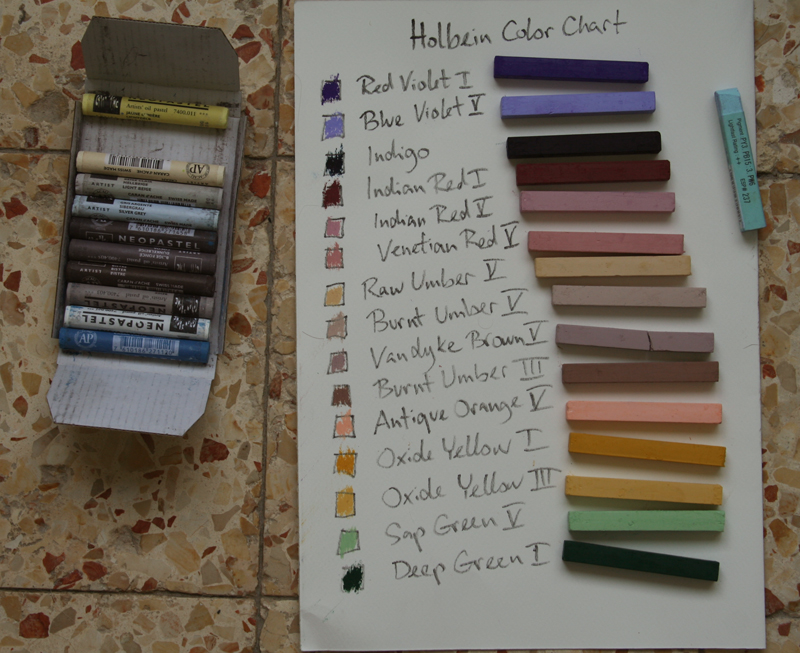 Holbein Color Chart
Red Violet I
Blue Violet V
Indigo
Indian Red I
Indian Red V
Venetian Red V
Raw Umber V
Burnt Umber V
Vandyke Brown V
Burnt Umber III
Antique Orange V
Oxide Yellow I
Oxide Yellow III
Sap Green V
Deep Green I
AP
ARTIST
SILVER GREY
NEOPASTEL
ARTIST
NEOPASTEL
NEOPASTEL
AP